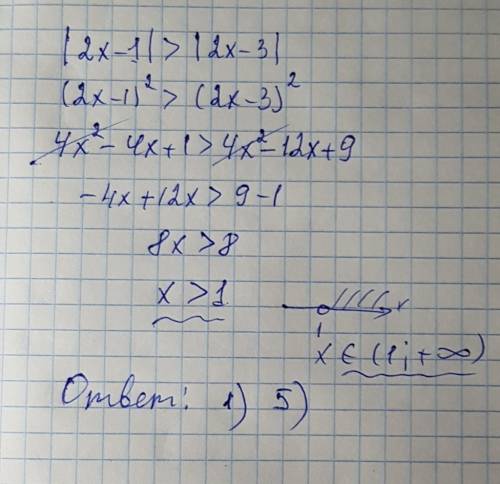 |2x-1|>|2x-3|
(2x-1)²>(2x-3)²
4x²-4x+1>4x²-12x+9
-4x+12x>9-1
8x>8
x>1
x
1
x∈(1;+∞)
Ответ: 1) 5)